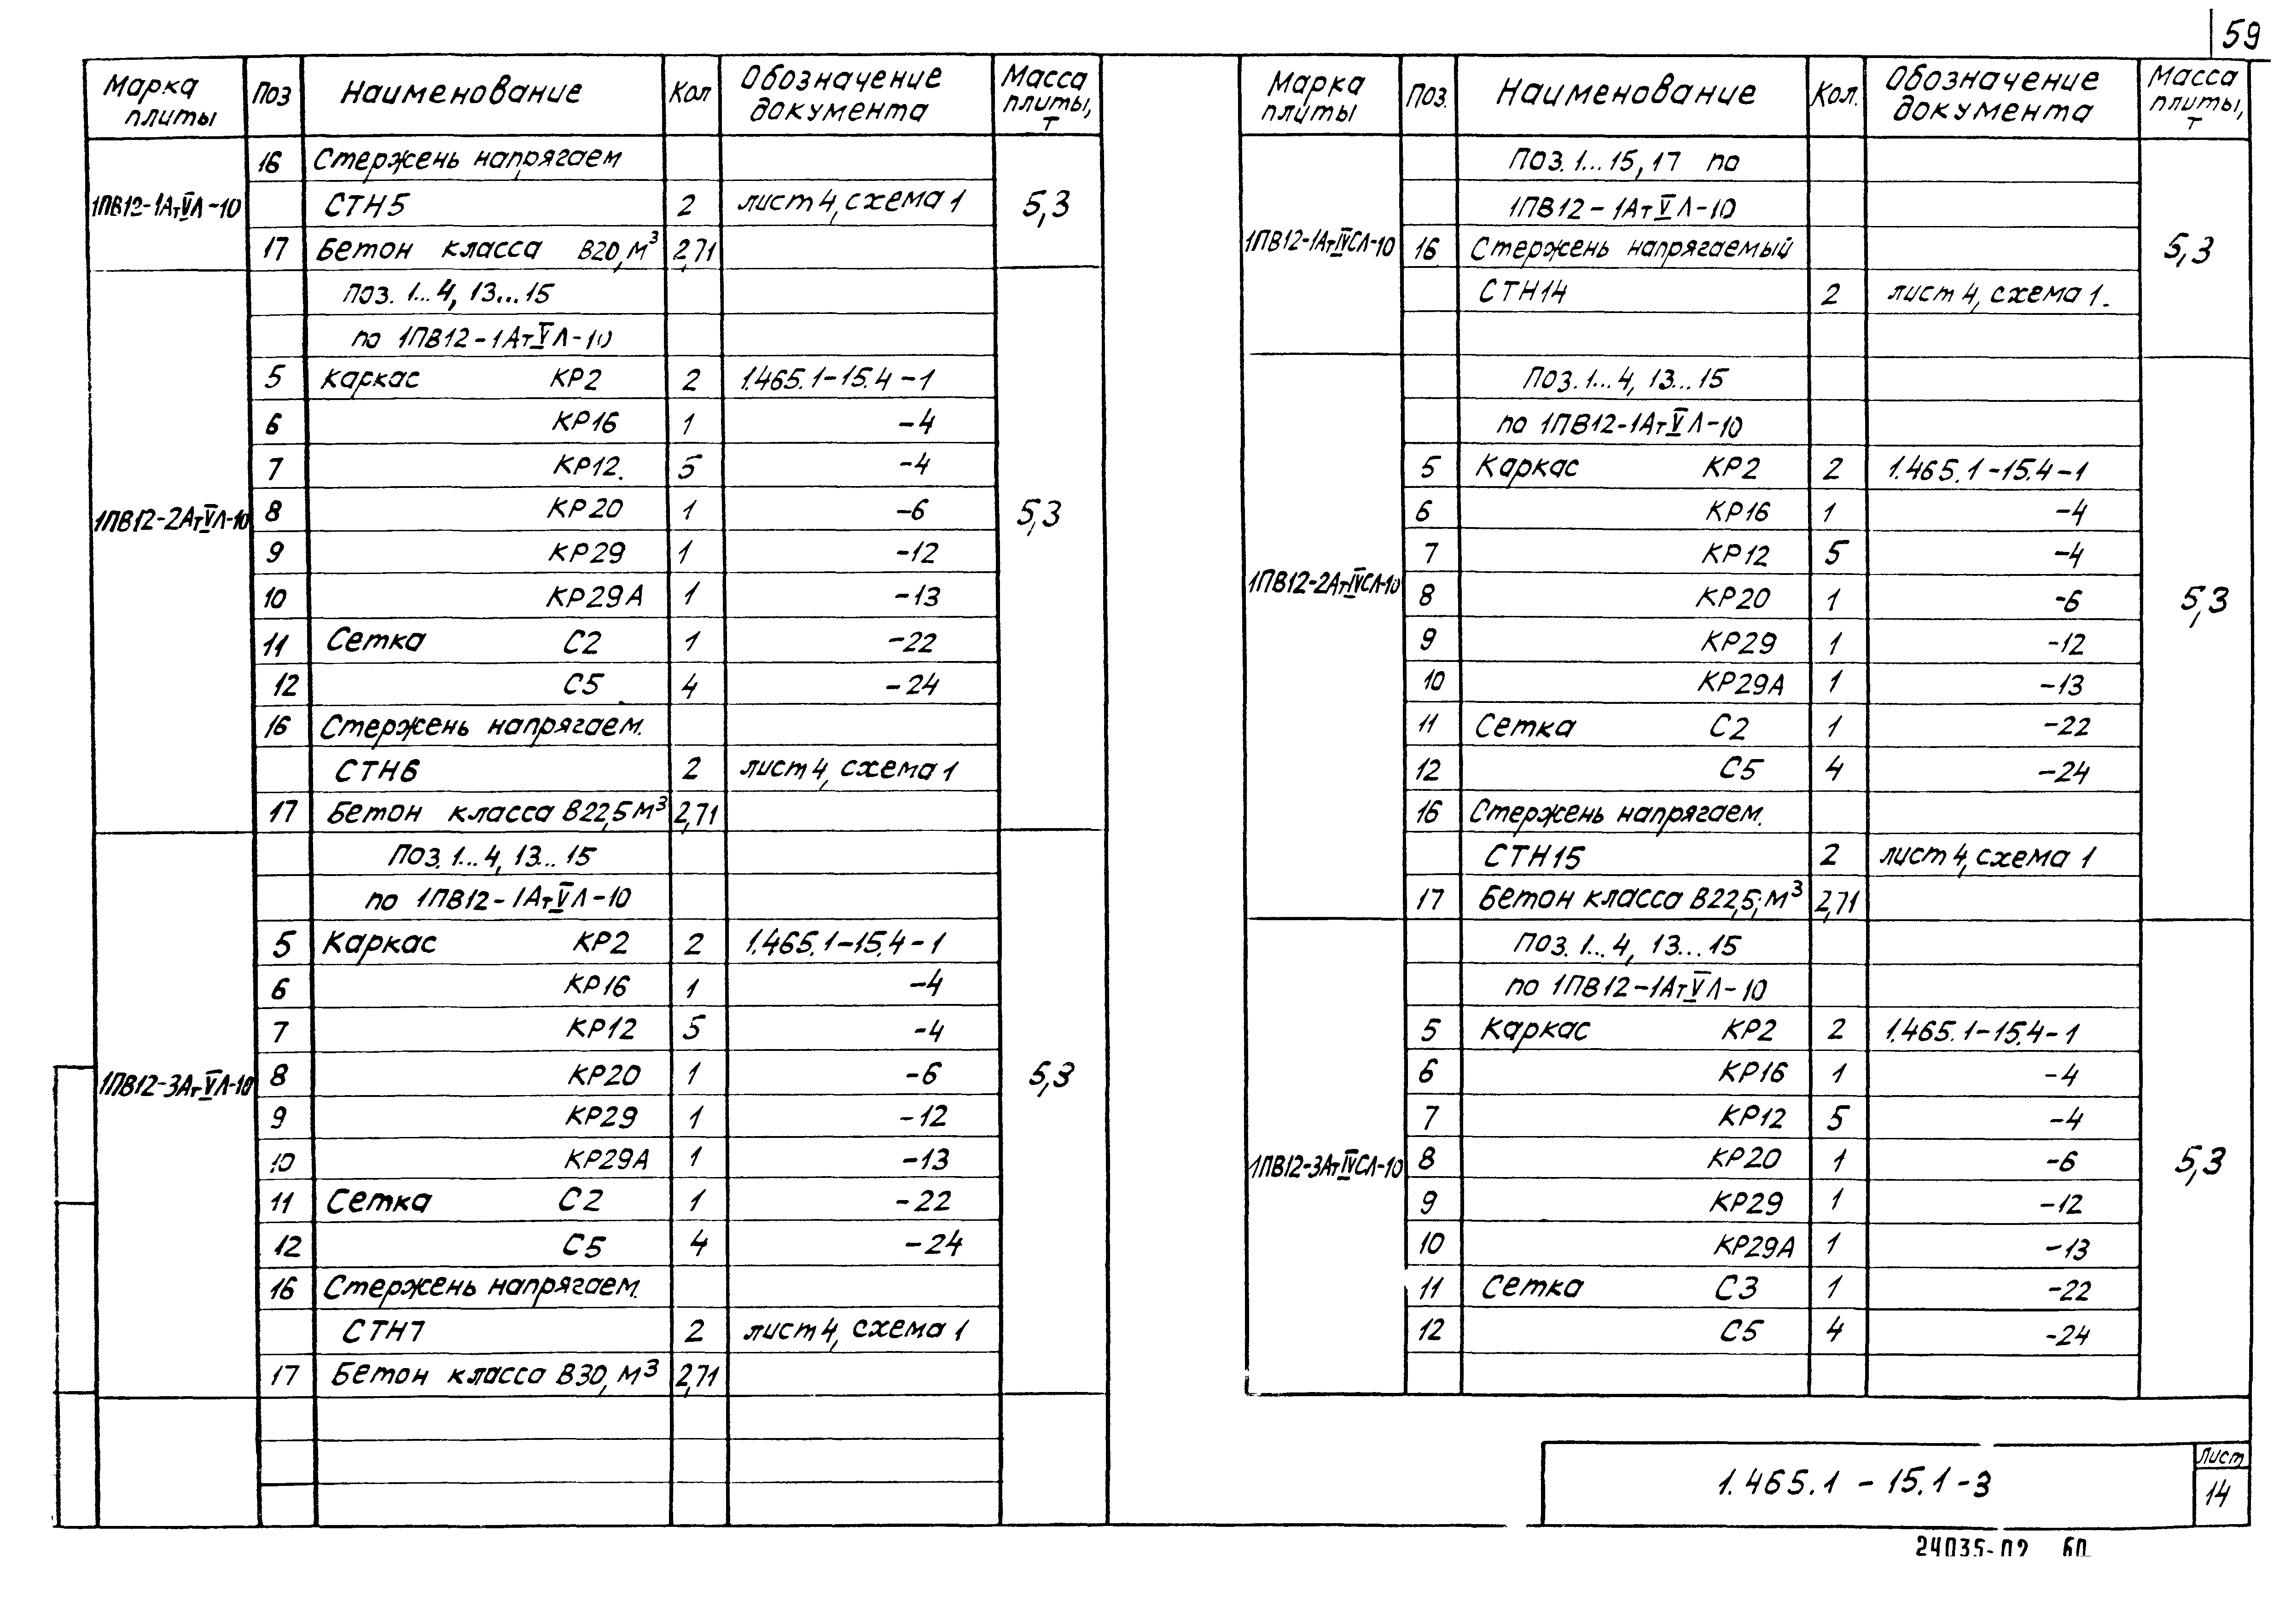 59
Марка плиты Поз Наименование Кол Обозначение документа Масса плиты, т
1ПВ12-1АтVЛ-10 16 Стержень напрягаем 5,3
СТН5 2 лист 4, схема 1
17 Бетон класса В20, м³ 2,71
1ПВ12-2АтVЛ-10 Поз. 1...4, 13...15 5,3
по 1ПВ12-1АтVЛ-10
5 Каркас КР2 2 1.465.1-15.4-1
6 КР16 1 -4
7 КР12. 5 -4
8 КР20 1 -6
9 КР29 1 -12
10 КР29А 1 -13
11 Сетка С2 1 -22
12 С5 4 -24
16 Стержень напрягаем.
СТН6 2 лист 4, схема 1
17 Бетон класса В22,5 м³ 2,71
1ПВ12-3АтVЛ-10 Поз. 1...4, 13...15 5,3
по 1ПВ12-1АтVЛ-10
5 Каркас КР2 2 1.465.1-15.4-1
6 КР16 1 -4
7 КР12 5 -4
8 КР20 1 -6
9 КР29 1 -12
10 КР29А 1 -13
11 Сетка С2 1 -22
12 С5 4 -24
16 Стержень напрягаем.
СТН7 2 лист 4, схема 1
17 Бетон класса В30, м³ 2,71
Марка плиты Поз. Наименование Кол. Обозначение документа Масса плиты, т
1ПВ12-1АтIVСЛ-10 Поз. 1...15, 17 по 5,3
1ПВ12-1АтVЛ-10
16 Стержень напрягаемый
СТН14 2 лист 4, схема 1.
1ПВ12-2АтIVСЛ-10 Поз. 1...4, 13...15 5,3
по 1ПВ12-1АтVЛ-10
5 Каркас КР2 2 1.465.1-15.4-1
6 КР16 1 -4
7 КР12 5 -4
8 КР20 1 -6
9 КР29 1 -12
10 КР29А 1 -13
11 Сетка С2 1 -22
12 С5 4 -24
16 Стержень напрягаем.
СТН15 2 лист 4, схема 1
17 Бетон класса В22,5; м³ 2,71
1ПВ12-3АтIVСЛ-10 Поз. 1...4, 13...15 5,3
по 1ПВ12-1АтVЛ-10
5 Каркас КР2 2 1.465.1-15.4-1
6 КР16 1 -4
7 КР12 5 -4
8 КР20 1 -6
9 КР29 1 -12
10 КР29А 1 -13
11 Сетка С3 1 -22
12 С5 4 -24
1.465.1 - 15.1-3
Лист
14
24035-02 60